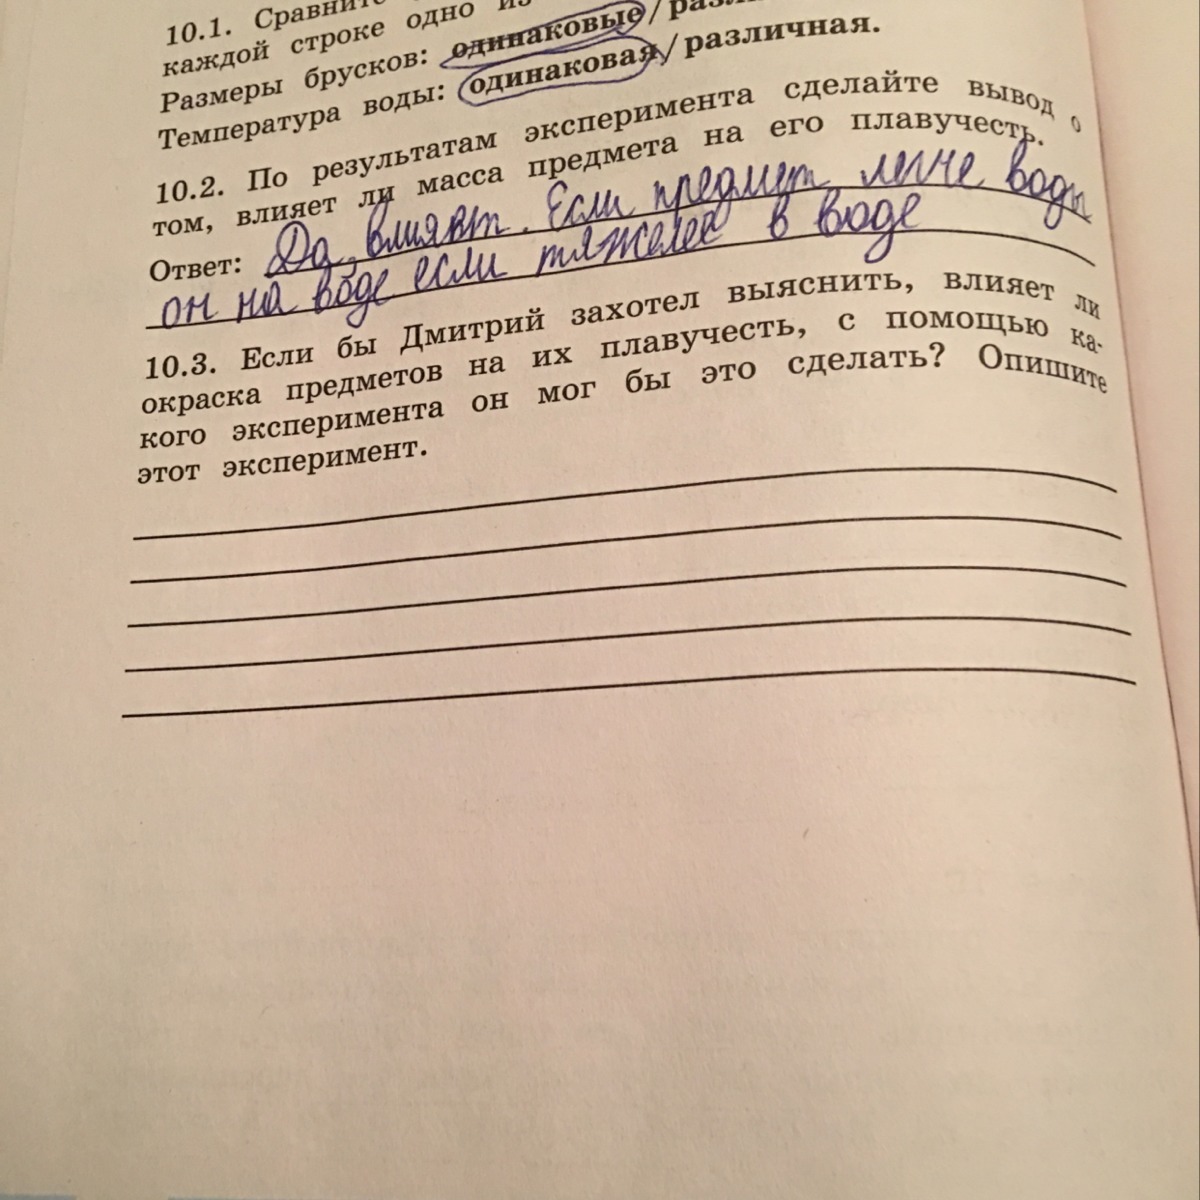 10.1. Сравните
каждой строке одно из
Размеры брусков: одинаковые / разл
Температура воды: одинаковая / различная.
10.2. По результатам эксперимента сделайте вывод о
том, влияет ли масса предмета на его плавучесть.
Ответ: Да, влияят. Если предмет легче воды
он на воде если тяжелее в воде
10.3. Если бы Дмитрий захотел выяснить, влияет ли
окраска предметов на их плавучесть, с помощью ка-
кого эксперимента он мог бы это сделать? Опишите
этот эксперимент.